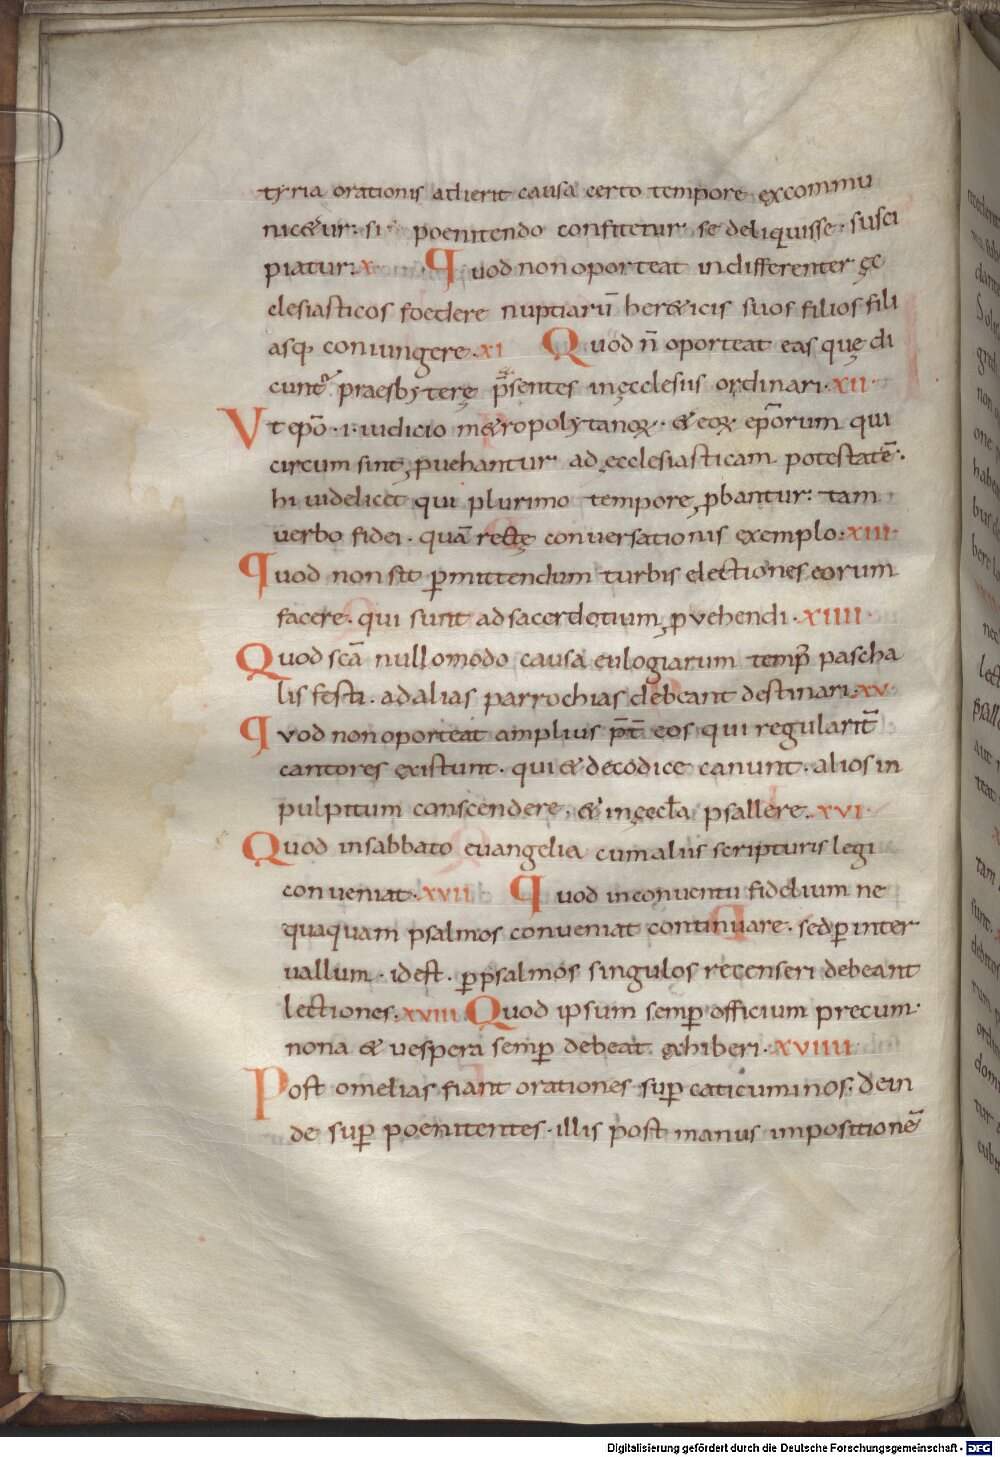 tyria orationis adierit causa certo tempore excommu
nic&ur· si poenitendo confitetur se deliquisse· susci
piatur· x Quod non oporteat indifferenter ęc
clesiasticos foedere nuptiarū her&icis suos filios fili
asq; coniungere· xi Quod n̄ oporteat eas quę di
cunt᷒ praesbyterę p̄sentes in ęcclesiis ordinari· xii·
Vt ep̄o· i· iudicio m&ropolytanoꝝ· & eoꝝ ep̄orum qui
circum sint, ꝓuehantur ad ęcclesiasticam potestatē·
hi uidelicet qui plurimo tempore ꝓbantur· tam
uerbo fidei· quā rectę conuersationis exemplo· xiii·
Quod non sit ꝑmittendum turbis electiones eorum
facere· qui sunt ad sacerdotium ꝓvehendi· xiiii·
Quod scā nullomodo causa eulogiarum temp̄ pascha
lis festi· ad alias parrochias debeant destinari· xv·
Quod non oporteat amplius p̄t̄ eos qui regularit̄
cantores existunt· qui & de codice canunt· alios in
pulpitum conscendere· & in ęccła psallere· xvi·
Quod in sabbato euangelia cum aliis scripturis legi
conueniat· xvii Quod in conuentu fidelium ne
quaquam psalmos conueniat continuare· sed ꝑ inter
uallum· id est· ꝑ psalmos singulos recenseri debeant
lectiones· xviii Quod ipsum semꝑ officium precum·
nona & vespera semꝑ debeat exhiberi· xviiii
Post omelias fiant orationes suꝑ caticuminos· dein
de suꝑ poenitentes· illis post manus impositionē
Digitalisierung gefördert durch die Deutsche Forschungsgemeinschaft - DFG